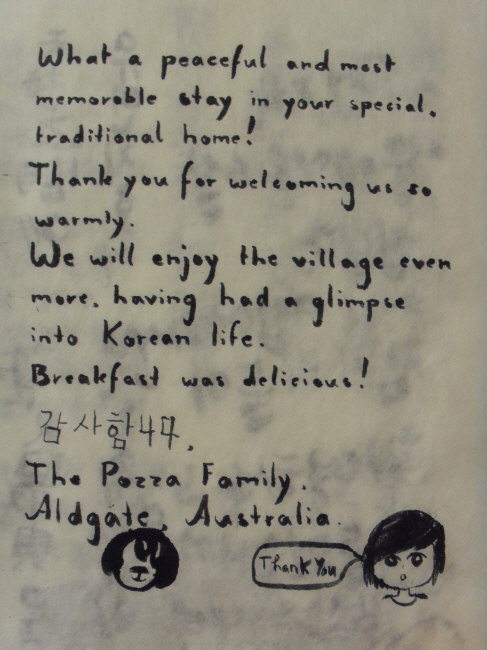 What a peaceful and most
memorable stay in your special,
traditional home!
Thank you for welcoming us so
warmly.
We will enjoy the village even
more, having had a glimpse
into Korean life.
Breakfast was delicious!
감사함
The Pozza Family.
Aldgate, Australia.
Thank You